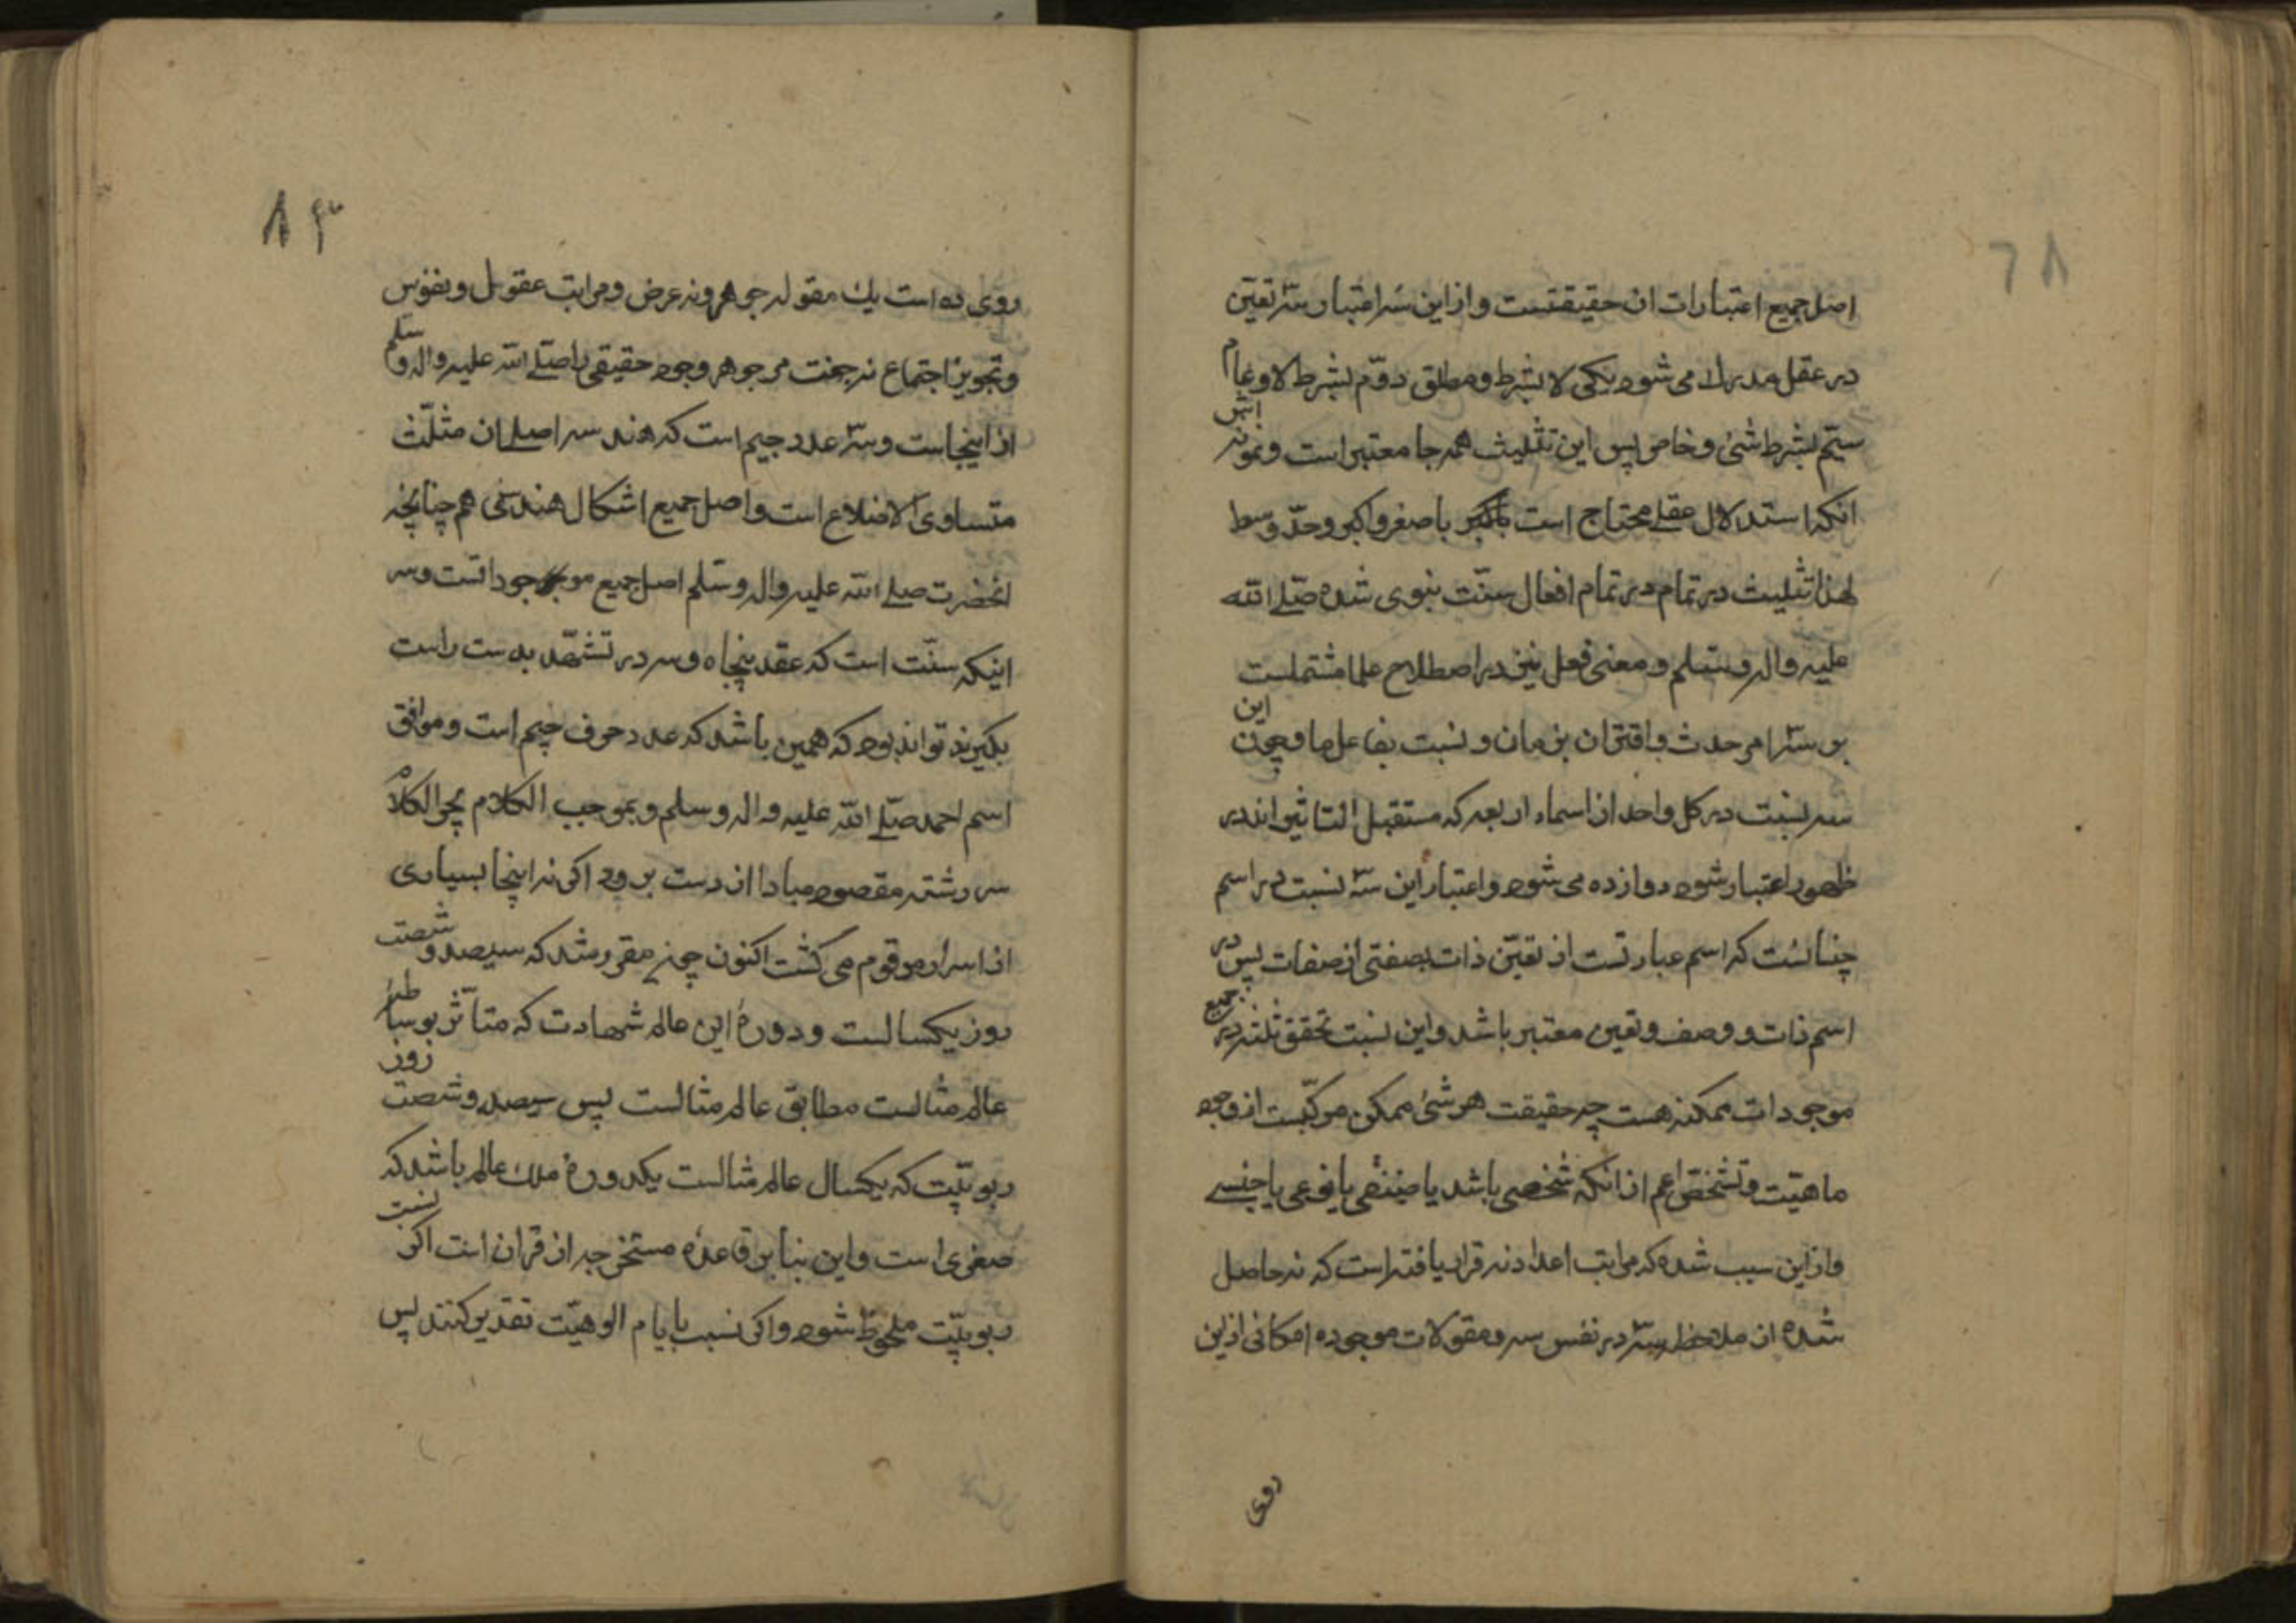 اصل جمیع اعتبارات ان حقیقتست و از این سه اعتبار سه تعین
در عقل مدرك می شود یکی لا بشرط و مطلق دوّم بشرط لا و عام
سیّم بشرط شئ و خاص پس این تثلیث همه جا معتبر است و نمونه اش
انکه استدلال عقلے محتاج است باصغر و اکبر و حدّ وسط
لهذا تثلیث در تمام در تمام افعال سنّت نبوی شده صلّے الله
علیه واله وسلم و معنی فعل نیز در اصطلاح علما مشتملست
بر سه امر حدث و اقتران بزمان و نسبت بفاعل ما و چون این
سه نسبت در کل واحد از اسماء اربعه که مستقبل التاثیر اند در
ظهور اعتبار شود دوازده می شود و اعتبار این سه نسبت در اسم
چنانست که اسم عبارتست از تعیّن ذات بصفتی از صفات پس در
اسم ذات و وصف و تعین معتبر باشد و این نسبت تحقق ثلثه در جمیع
موجودات ممکنه هست چه حقیقت هر شئ ممکن مرکّبست از وجود
ماهیّت و تشخّص اعم از انکه شخصی باشد یا صنفی یا نوعی یا جنسے
و از این سبب شده که مراتب اعداد نه قرار یافته است که نه حاصل
شده از ملاحظه سه در نفس سه و مقولات موجوده امکانی از این
روی
۸۳
روی ده است یك مقوله جوهر و نه عرض و مراتب عقول و نفوس
و تجویز اجتماع نه جفت مر جوهر وجود حقیقی را صلّے الله علیه واله وسلم
از اینجاست و سه عدد جیم است که هندسه اصلے ان مثلّث
متساوی الاضلاع است و اصل جمیع اشکال هندسی هم چنانچه
انحضرت صلے الله علیه واله وسلم اصل جمیع موجوداتست و سر
اینکه سنّت است که عقد پنجاه و سه در تشهّد بدست راست
بگیرند تواند بود که همین باشد که عدد حرف جیم است و موافق
اسم احمد صلّے الله علیه واله وسلم و بموجب الکلام یجر الکلام
سر رشته مقصود مبادا از دست برود اکر نه اینجا بسیاری
از اسرار مرقوم می کشت اکنون چون مقرر شد که سیصد و شصت
روز یکسالست و دورهٔ این عالم شهادت که متأثر بوسایط
عالم مثالست مطابق عالم مثالست پس سیصد و شصت روز
ربوبیّت که یکسال عالم مثالست یکدورهٔ ملك عالم باشد که
صغری است و این بنابر قاعدهٔ مستخرجه از قران است اکر نسبت
ربوبیّت ملحوظ شود و اکر نسبت بایام الوهیّت تقدیر کنند پس